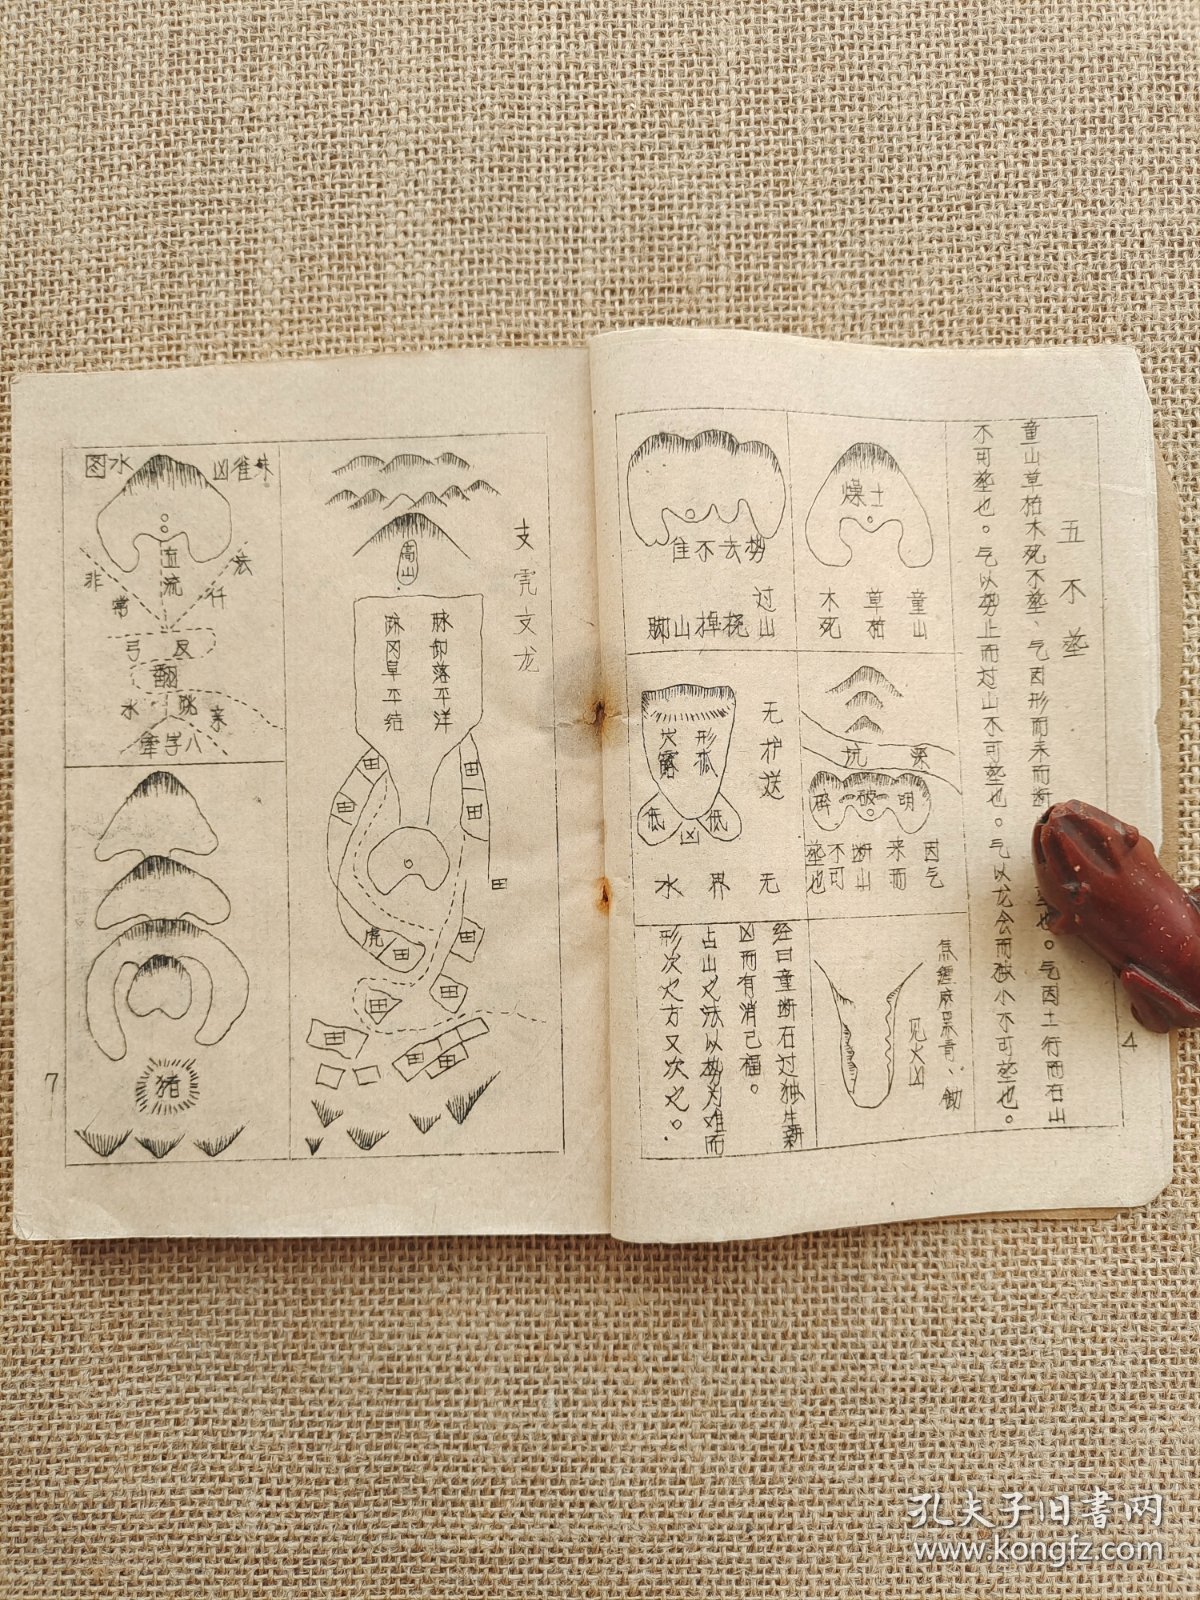 五不塟
童山草枯木死不塟、气因形而来而断
也。气因土行而石山
不可塟也。气以势止而过山不可塟也。气以龙会而独小不可塟也。
燥土
童山
草枯
木死
势去不住
过山
桡棹山脚
深坑
明破碎
因气
来而
断山
不可
塟也
无护送
形孤
穴露
低
低
凶
无界水
见火凶
经曰童断石过独生新
凶而有消已福。
占山之法以势为难而
形次之方又次之。
4
支龙
高山
脉卸落平洋
平结
田
田
田
田
田
虎
田
田
田
田
田
田
田
朱雀凶
水图
直流
法
非常
反弓
翻跳
水
八字
猪
7
孔夫子旧书网
www.kongfz.com